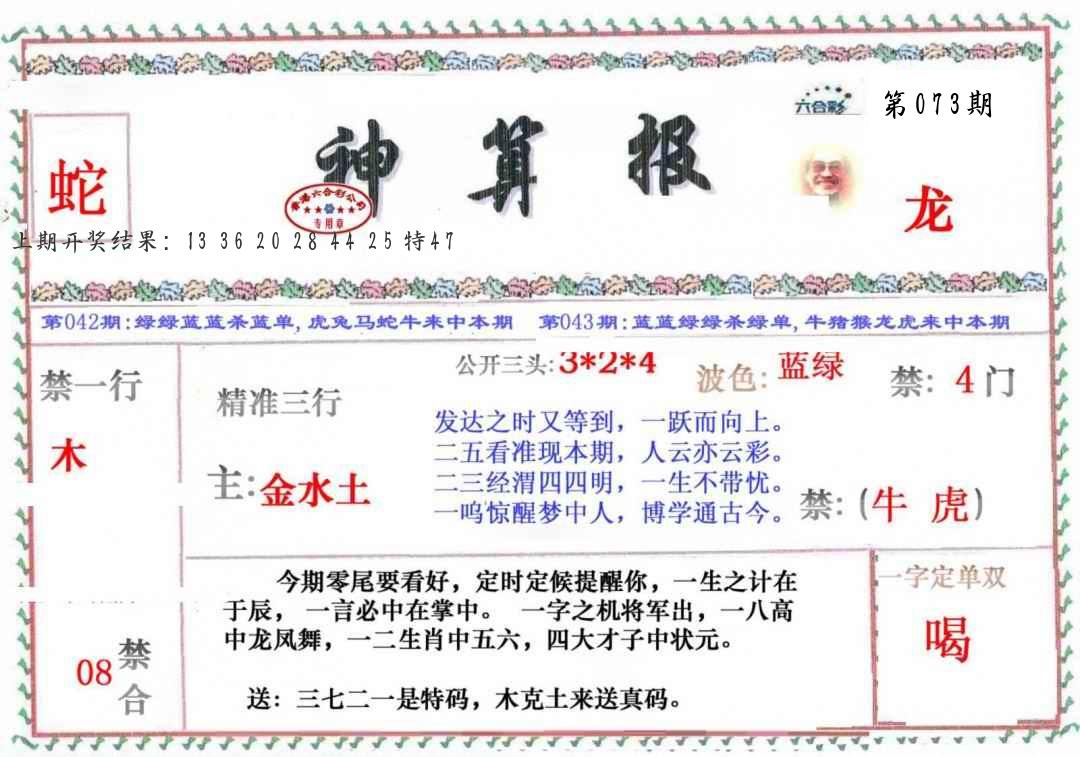 六合彩
第073期
神算报
蛇
香港六合彩公司
专用章
龙
上期开奖结果：13 36 20 28 44 25 特47
第042期:绿绿蓝蓝杀蓝单,虎兔马蛇牛来中本期 第043期:蓝蓝绿绿杀绿单,牛猪猴龙虎来中本期
禁一行
木
精准三行
主:金水土
公开三头:3*2*4
波色:蓝绿
禁:4门
发达之时又等到，一跃而向上。
二五看准现本期，人云亦云彩。
二三经渭四四明，一生不带忧。
一鸣惊醒梦中人，博学通古今。
禁:(牛 虎)
今期零尾要看好，定时定候提醒你，一生之计在
于辰， 一言必中在掌中。 一字之机将军出，一八高
中龙凤舞，一二生肖中五六，四大才子中状元。
送：三七二一是特码，木克土来送真码。
一字定单双
喝
08禁合